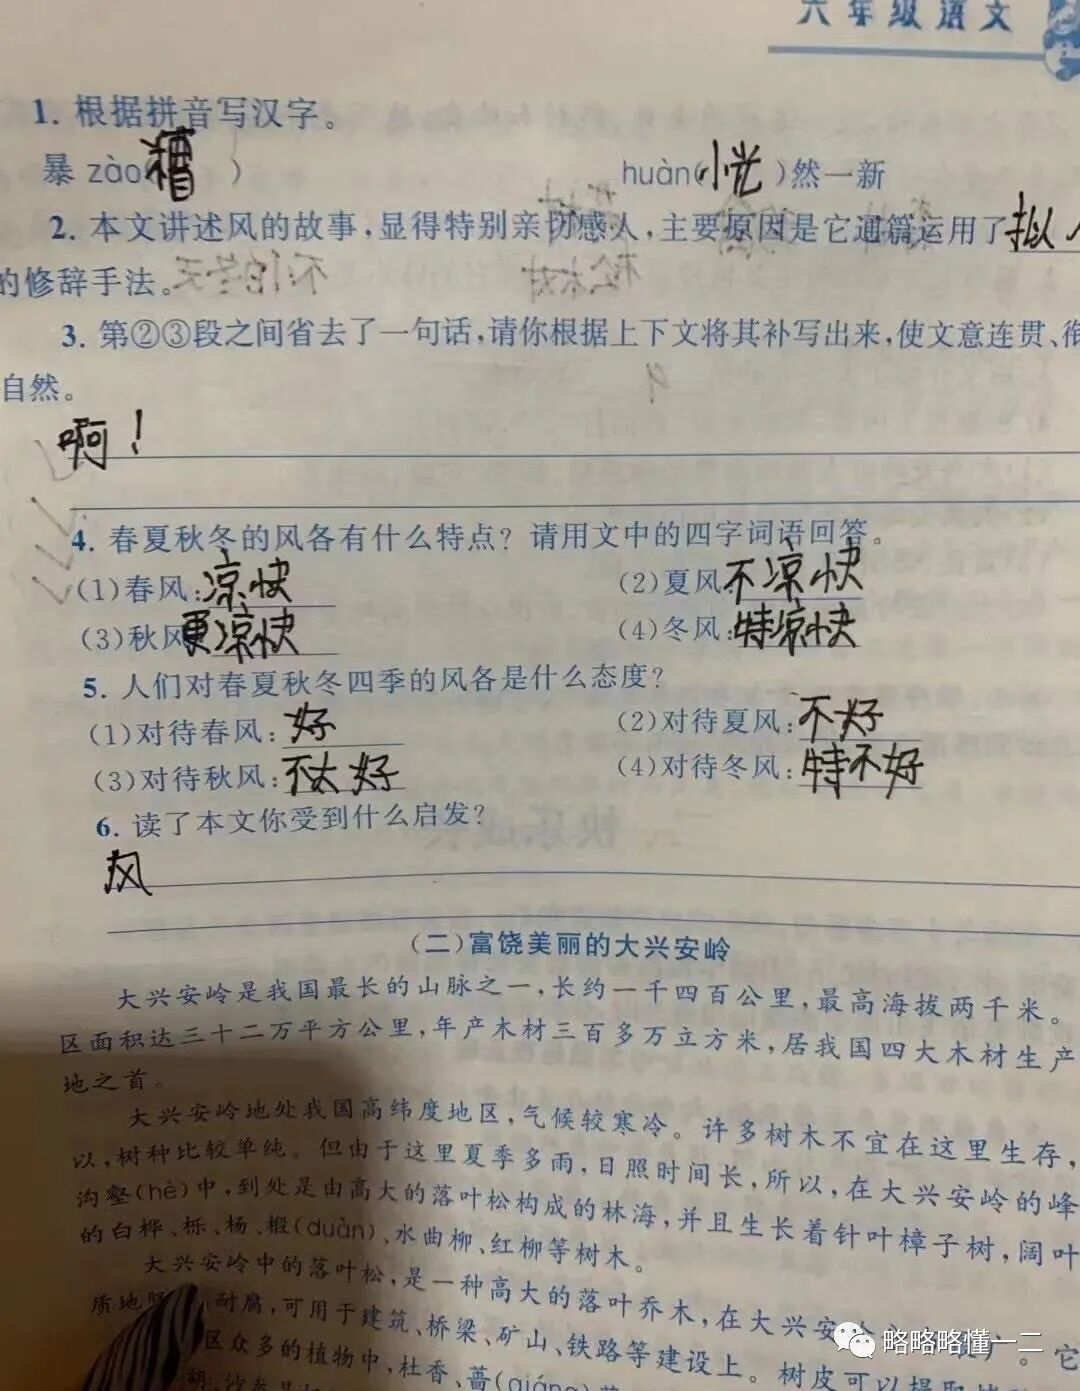 六年级语文
1. 根据拼音写汉字。
暴 zào(糟) huàn(恍)然一新
2. 本文讲述风的故事,显得特别亲切感人,主要原因是它通篇运用了拟人
的修辞手法。
3. 第②③段之间省去了一句话,请你根据上下文将其补写出来,使文意连贯、衔
自然。
啊!
4. 春夏秋冬的风各有什么特点?请用文中的四字词语回答。
(1)春风:凉快 (2)夏风不凉快
(3)秋风:更凉快 (4)冬风:特凉快
5. 人们对春夏秋冬四季的风各是什么态度?
(1)对待春风:好 (2)对待夏风:不好
(3)对待秋风:不太好 (4)对待冬风:特不好
6. 读了本文你受到什么启发?
风
(二)富饶美丽的大兴安岭
大兴安岭是我国最长的山脉之一,长约一千四百公里,最高海拔两千米。
区面积达三十二万平方公里,年产木材三百多万立方米,居我国四大木材生产
地之首。
大兴安岭地处我国高纬度地区,气候较寒冷。许多树木不宜在这里生存,
以,树种比较单纯。但由于这里夏季多雨,日照时间长,所以,在大兴安岭的峰
沟壑(hè)中,到处是由高大的落叶松构成的林海,并且生长着针叶樟子树,阔叶
的白桦、栎、杨、椴(duàn)、水曲柳、红柳等树木。
大兴安岭中的落叶松,是一种高大的落叶乔木,在大兴安
质地 耐腐,可用于建筑、桥梁、矿山、铁路等建设上。树皮可以提取
区众多的植物中,杜香、蔷(qiáng)
略略略懂一二